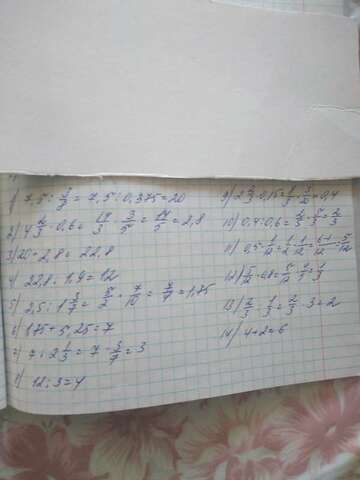 1) 7,5 : 3/8 = 7,5 : 0,375 = 20
2) 4 2/3 · 0,6 = 14/3 · 3/5 = 14/5 = 2,8
3) 20 + 2,8 = 22,8
4) 22,8 : 1,9 = 12
5) 2,5 : 1 3/7 = 5/2 · 7/10 = 7/4 = 1,75
6) 1,75 + 5,25 = 7
7) 7 : 2 1/3 = 7 · 3/7 = 3
8) 12 : 3 = 4
9) 2 2/3 · 0,15 = · 3/20 = 0,4
10) 0,4 : 0,6 = 2/5 · 5/3 = 2/3
11) 0,5 - 1/12 = 1/2 - 1/12 = 6-1/12 = 5/12
12) 5/12 · 0,8 = 5/12 · 4/5 = 1/3
13) 2/3 : 1/3 = 2/3 · 3 = 2
14) 4 + 2 = 6